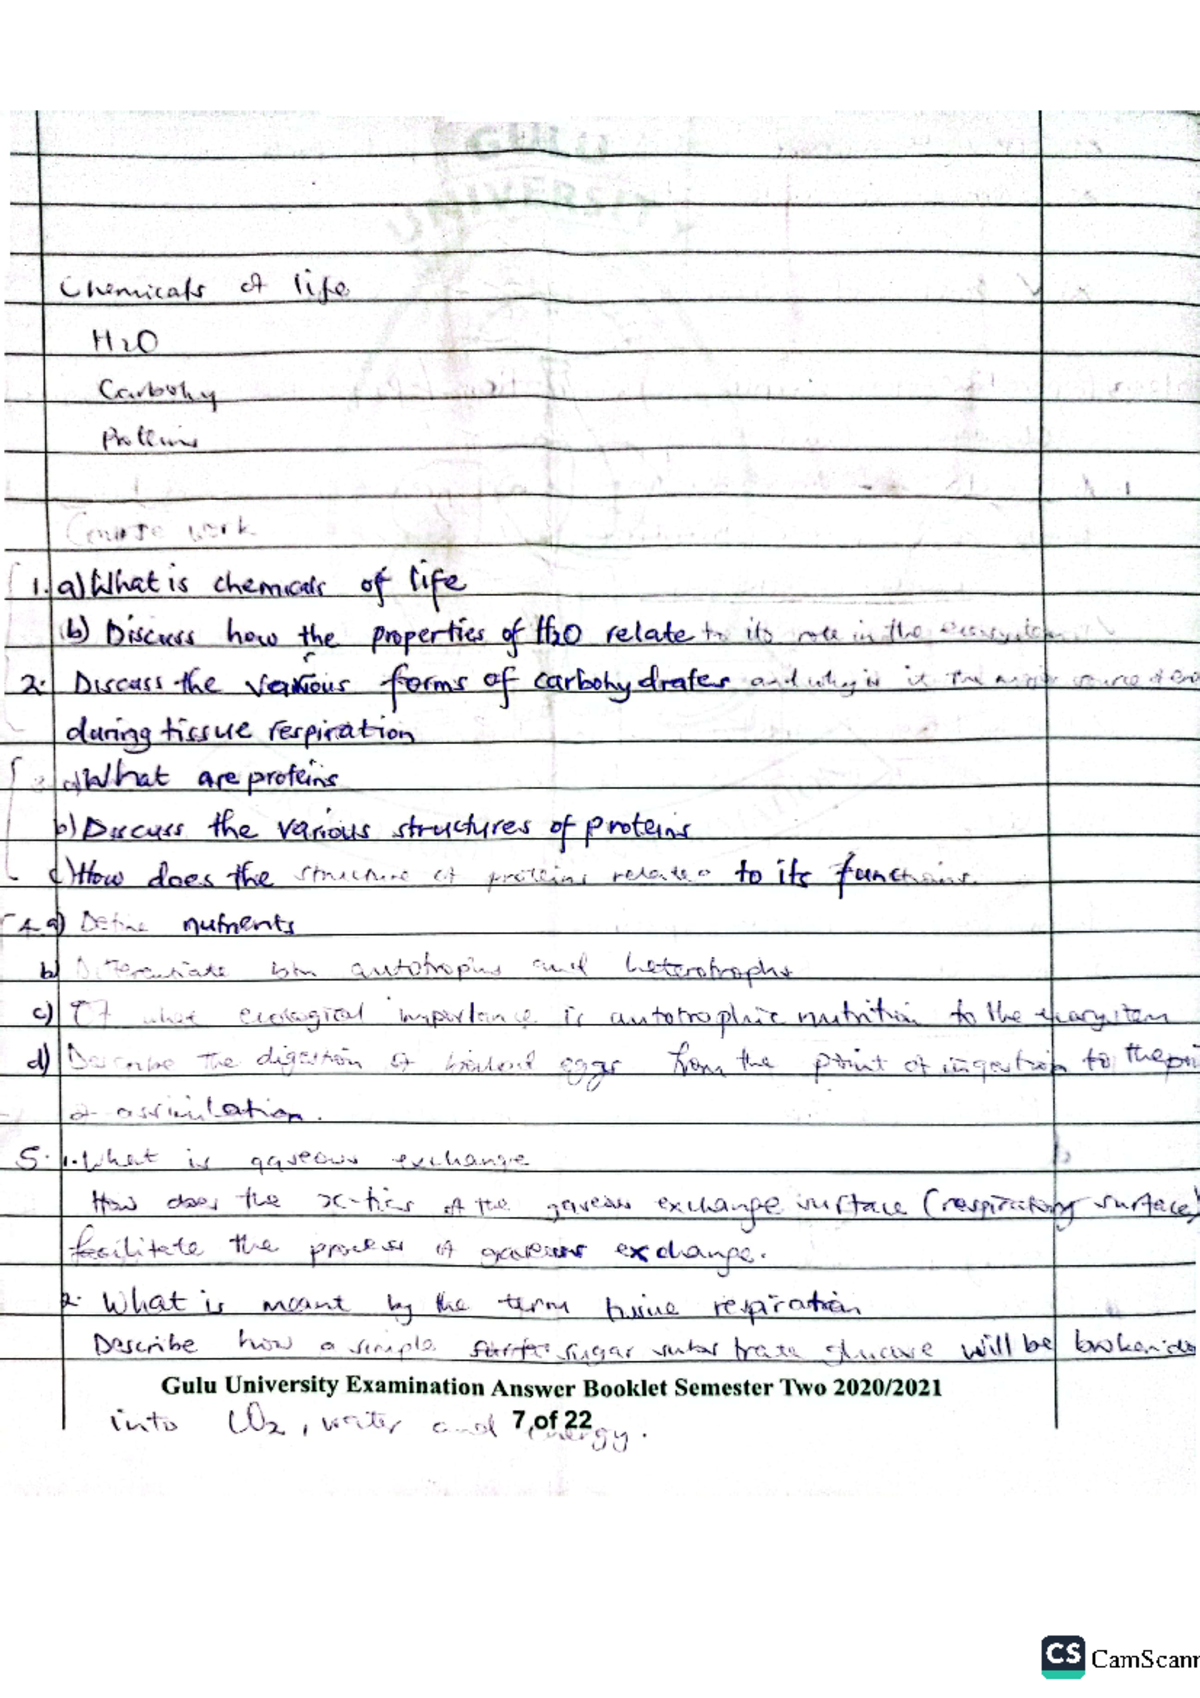 GULU
UNIVERSITY
Chemicals of life
H2O
Carbohy
Proteins
Course work
1. a) What is chemicals of life
(b) Discuss how the properties of H2O relate to its role in the ecosystem.
2. Discuss the various forms of carbohydrates and why is it the major source of
during tissue respiration
3 a) What are proteins
b) Discuss the various structures of proteins
c) How does the structure of proteins relates to its functions.
4. a) Define nutrients
b) Differentiate btn autotrophs and heterotrophs
c) Of what ecological importance is autotrophic nutrition to the ecosystem
d) Describe the digestion of boiled eggs from the point of ingestion to the
of assimilation.
5. 1. What is gaseous exchange
How does the x-tics of the gaseous exchange surface (respiratory surface)
facilitate the process of gaseous exchange.
2. What is meant by the term tissue respiration
Describe how a simple sugar substrate glucose will be broken do
Gulu University Examination Answer Booklet Semester Two 2020/2021
into CO2, water and energy.
7 of 22
CS CamScann